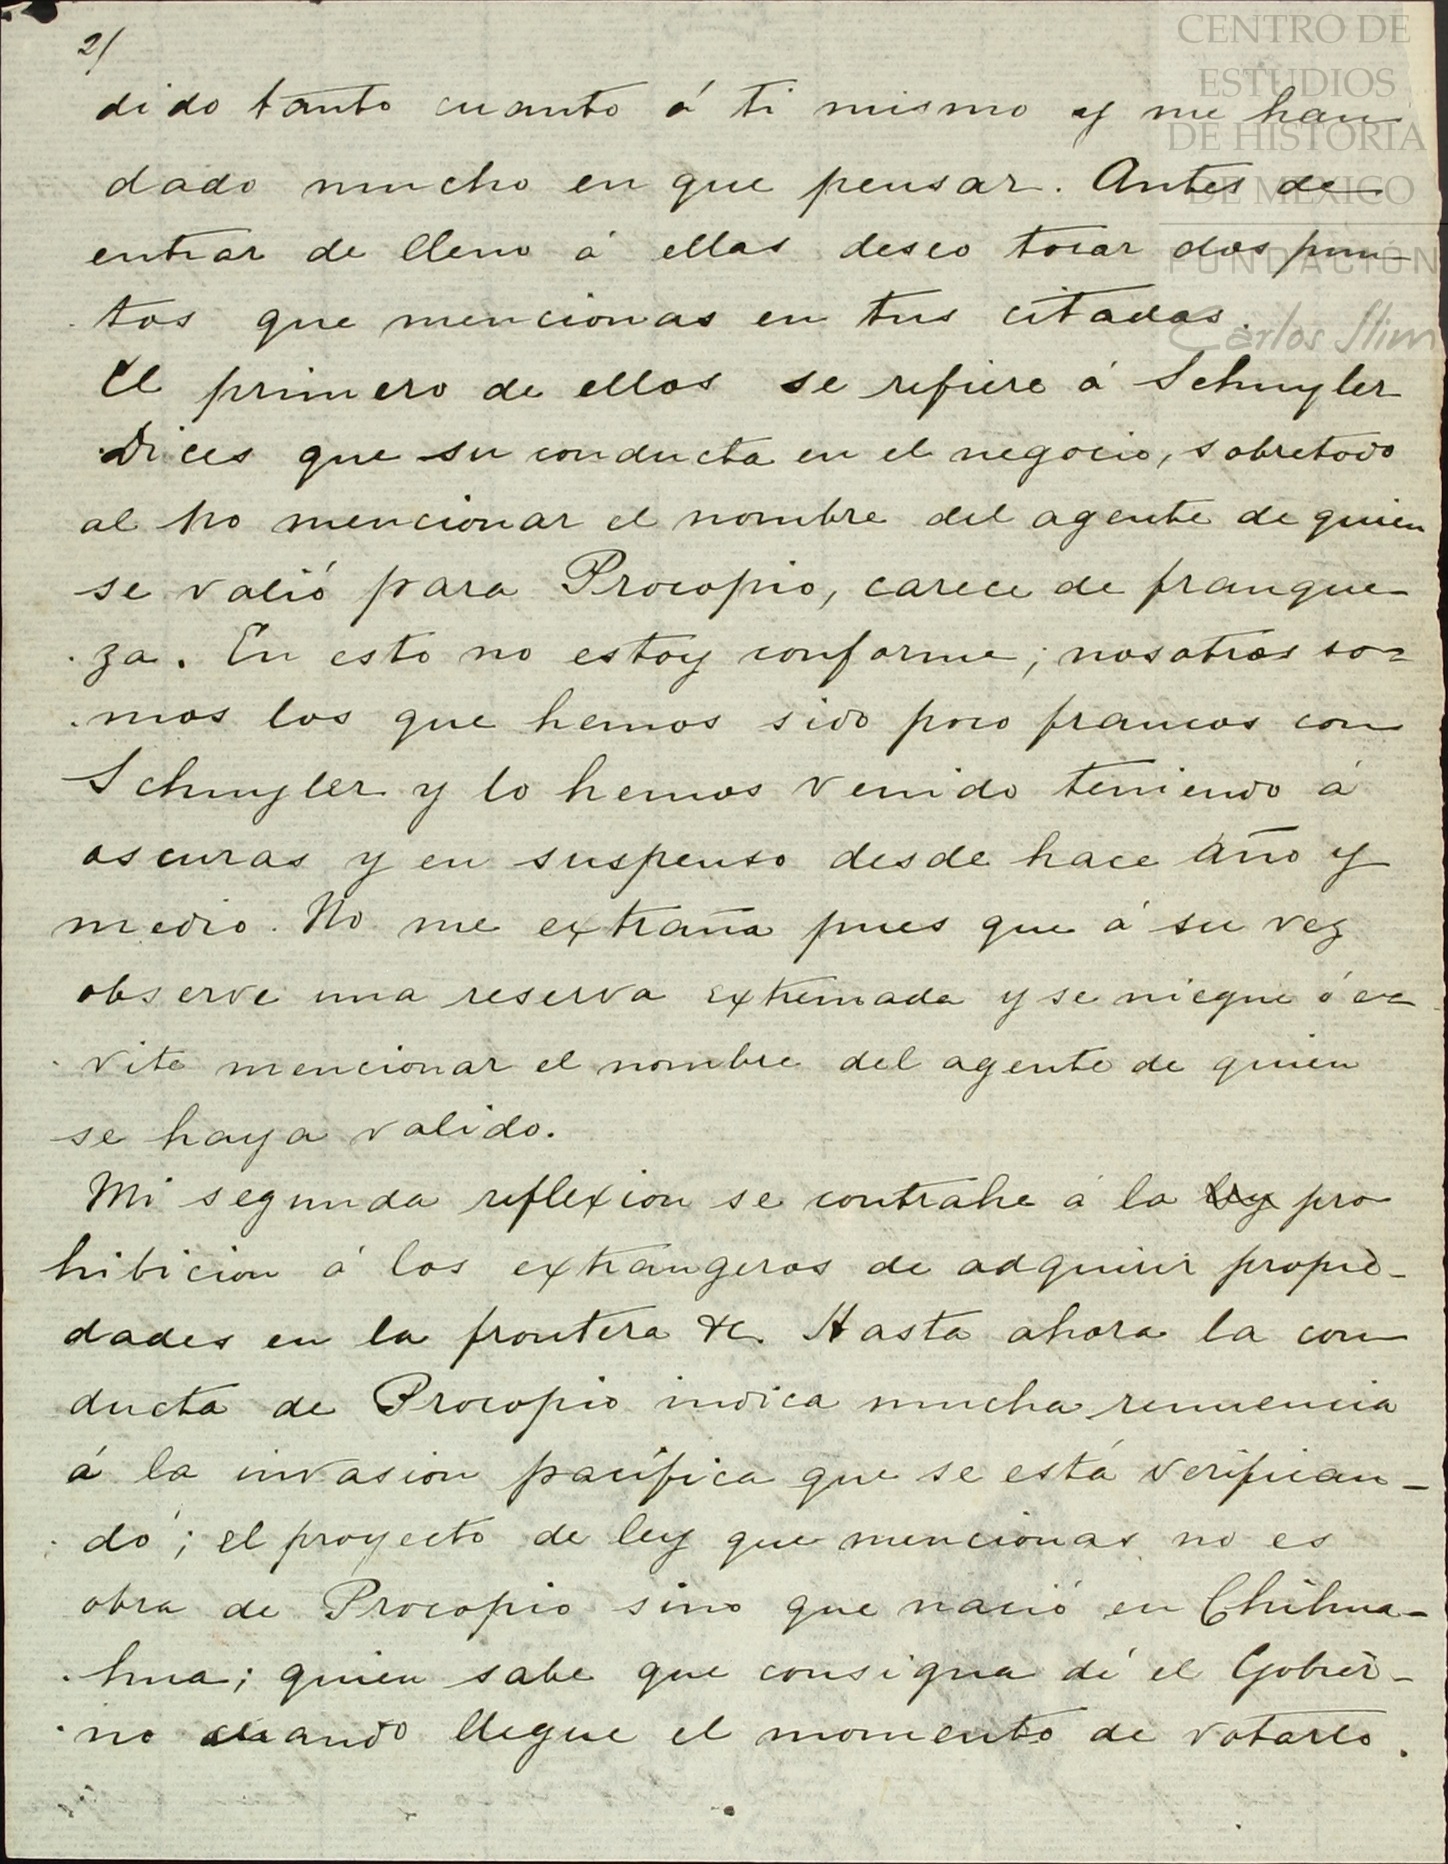 2/
CENTRO DE
ESTUDIOS
DE HISTORIA
DE MEXICO
FUNDACIÓN
Carlos Slim
dido tanto cuanto á ti mismo y me han
dado mucho en que pensar. Antes de
entrar de lleno á ellas deseo tocar dos pun-
tos que mencionas en tus citadas.
El primero de ellos se refiere á Schuyler
Dices que su conducta en el negocio, sobretodo
al no mencionar el nombre del agente de quien
se valió para Procopio, carece de franque-
za. En esto no estoy conforme; nosotros so-
mos los que hemos sido poco francos con
Schuyler y lo hemos venido teniendo á
oscuras y en suspenso desde hace año y
medio. No me extraña pues que á su vez
observe una reserva extremada y se niegue ó e-
vite mencionar el nombre del agente de quien
se haya valido.
Mi segunda reflexion se contrahe á la ley pro
hibicion á los extrangeros de adquirir propie-
dades en la frontera &c. Hasta ahora la con
ducta de Procopio indica mucha renuencia
á la invasion pacífica que se está verifican-
do; el proyecto de ley que mencionas no es
obra de Procopio sino que nació en Chihua-
hua; quien sabe que consigna dé el Gobier-
no cuando llegue el momento de votarlo.